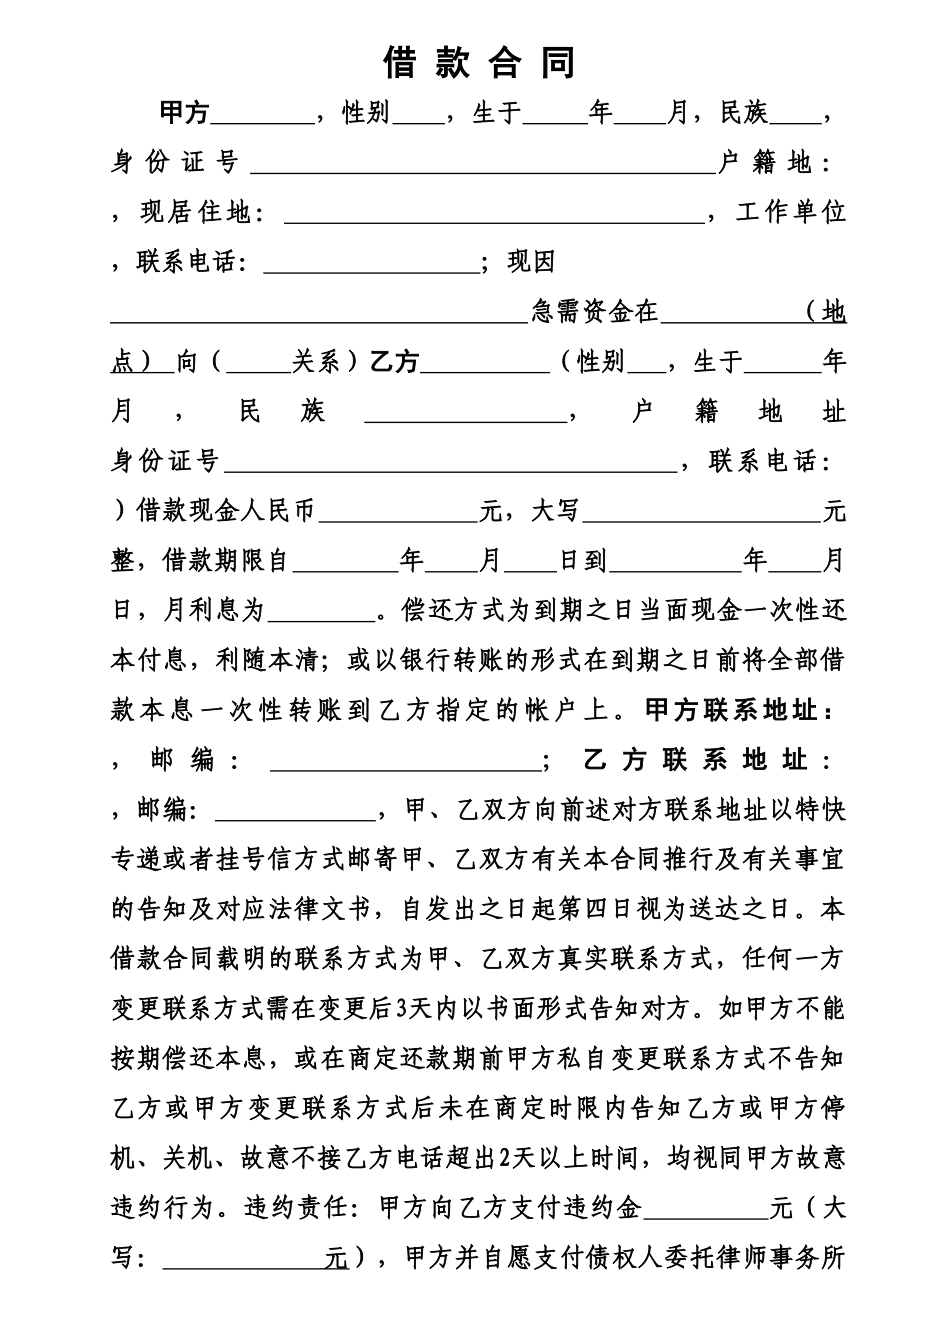 借 款 合 同
甲方________，性别____，生于_____年____月，民族____，
身份证号____________________________________户籍地：
，现居住地：________________________________，工作单位
，联系电话：_________________；现因
________________________________急需资金在___________（地
点）_向（_____关系）乙方__________（性别___，生于______年
月，民族________________，户籍地址
身份证号___________________________________，联系电话：
）借款现金人民币____________元，大写__________________元
整，借款期限自________年____月____日到__________年____月
日，月利息为________。偿还方式为到期之日当面现金一次性还
本付息，利随本清；或以银行转账的形式在到期之日前将全部借
款本息一次性转账到乙方指定的帐户上。甲方联系地址：
，邮编：_____________________；乙方联系地址：
，邮编：____________，甲、乙双方向前述对方联系地址以特快
专递或者挂号信方式邮寄甲、乙双方有关本合同推行及有关事宜
的告知及对应法律文书，自发出之日起第四日视为送达之日。本
借款合同载明的联系方式为甲、乙双方真实联系方式，任何一方
变更联系方式需在变更后3天内以书面形式告知对方。如甲方不能
按期偿还本息，或在商定还款期前甲方私自变更联系方式不告知
乙方或甲方变更联系方式后未在商定时限内告知乙方或甲方停
机、关机、故意不接乙方电话超出2天以上时间，均视同甲方故意
违约行为。违约责任：甲方向乙方支付违约金_________元（大
写：____________元），甲方并自愿支付债权人委托律师事务所